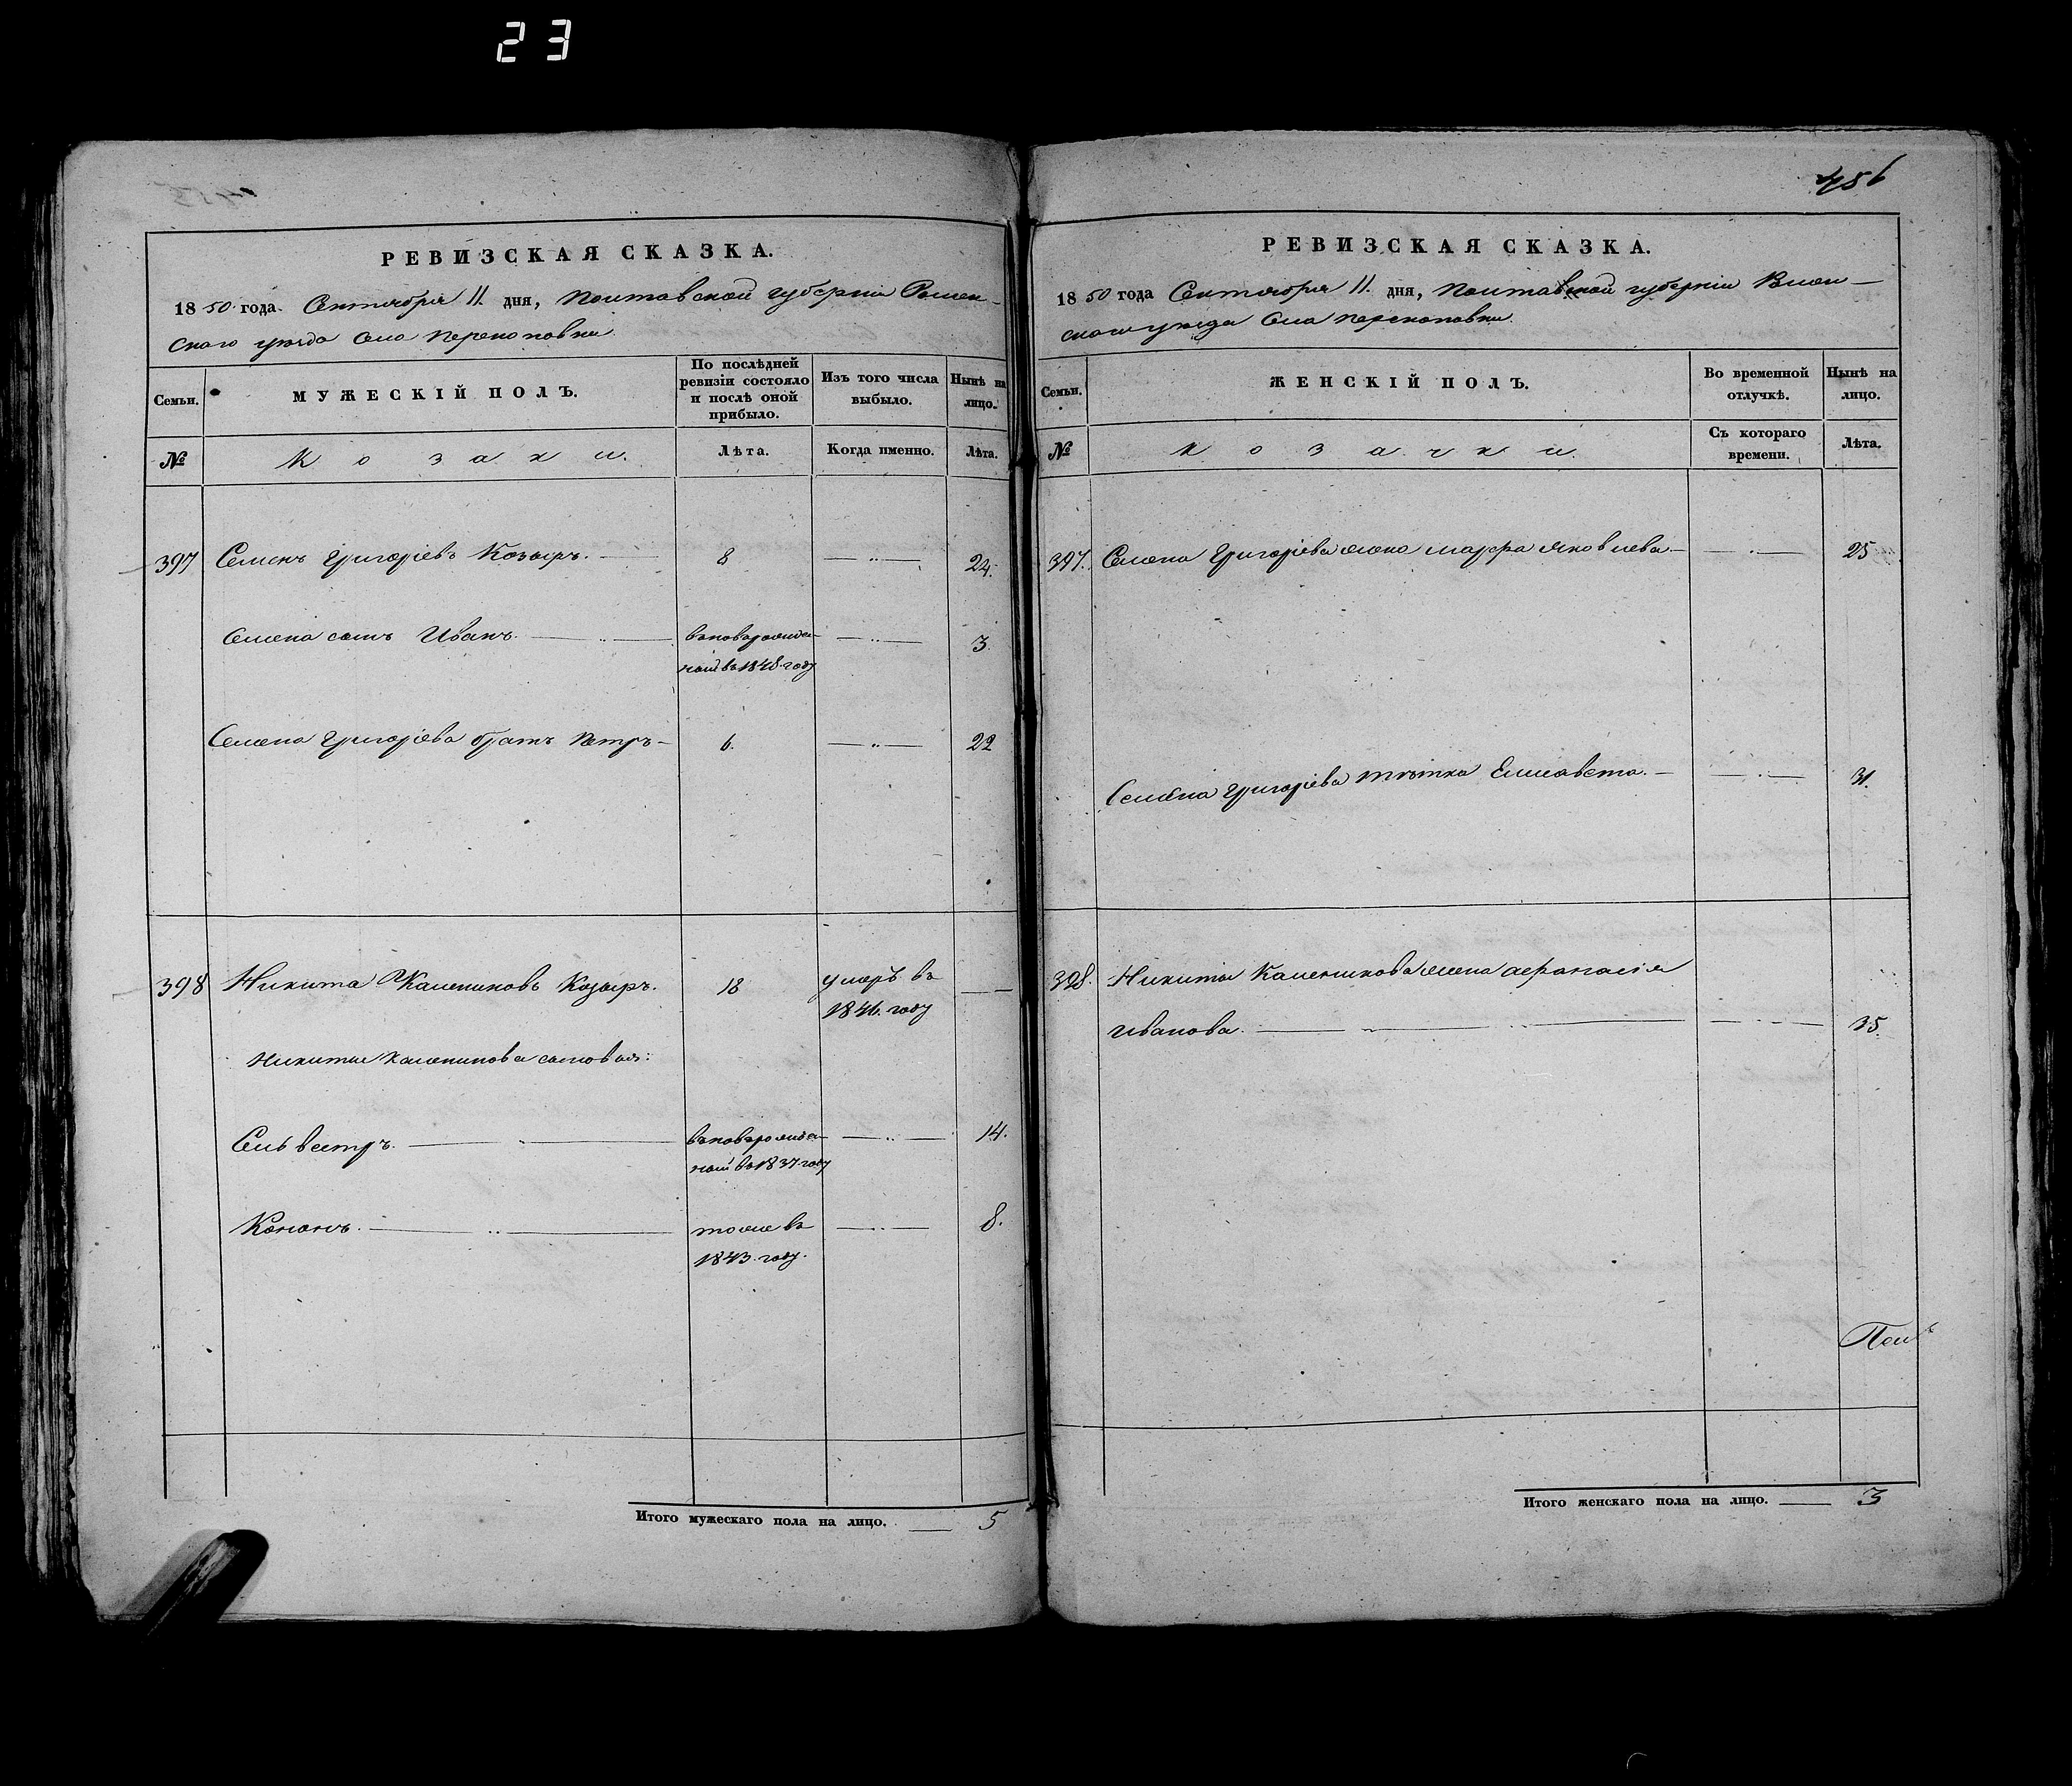 23
РЕВИЗСКАЯ СКАЗКА.
1850 года Сентября 11 дня, Полтавской губернiи Ромен-
скаго уѣзда села Перекоповки
Семьи.
МУЖЕСКIЙ ПОЛЪ.
По послѣдней
ревизiи состояло
и послѣ оной
прибыло.
Изъ того числа
выбыло.
Нынѣ на
лицо.
№
Козаки.
Лѣта.
Когда именно.
Лѣта.
397 Семенъ Григорiевъ Козыръ. 8 24.
Семена сынъ Иванъ. вновьрожден- 3.
ный въ 1848 году
Семена Григорiева братъ Петръ 6. 22
398 Никита Калениковъ Козыръ. 18 умеръ въ
1846. году
Никиты Каленикова сыновья:
Сильвестръ. вновьрожден- 14.
ный въ 1837 году
Кононъ. тоже въ 8.
1843. году.
Итого мужескаго пола на лицо. 5
456
РЕВИЗСКАЯ СКАЗКА.
1850 года Сентября 11. дня, Полтавской губернiи Ромен-
скаго уѣзда села Перекоповки.
Семьи.
ЖЕНСКIЙ ПОЛЪ.
Во временной
отлучкѣ.
Нынѣ на
лицо.
№
Козачки.
Съ котораго
времени.
Лѣта.
397. Семена Григорiева жена Марфа Яковлева 25
Семена Григорiева тѣтка Елисавета. 31.
398. Никиты Каленикова жена Афанасiя
Иванова. 35.
Итого женскаго пола на лицо. 3